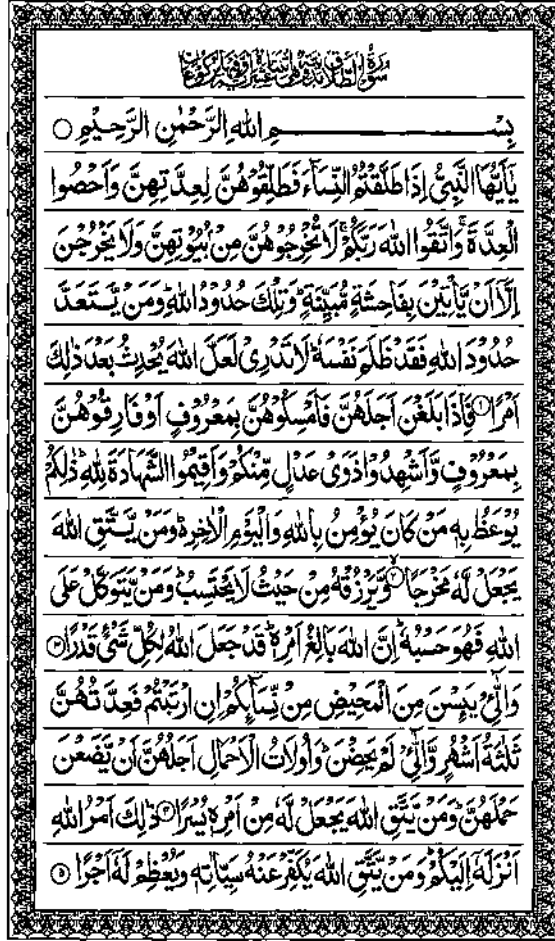 سُوْرَةُ الطَّلَاقِ مَدَنِيَّةٌ وَّهِيَ اثْنَتَا عَشْرَةَ اٰيَةً وَّفِيْهَا رُكُوْعَانِ
بِسْمِ اللّٰهِ الرَّحْمٰنِ الرَّحِيْمِ ○
يٰۤاَيُّهَا النَّبِيُّ اِذَا طَلَّقْتُمُ النِّسَآءَ فَطَلِّقُوْهُنَّ لِعِدَّتِهِنَّ وَاَحْصُوا
الْعِدَّةَ ۚ وَاتَّقُوا اللّٰهَ رَبَّكُمْ ۚ لَا تُخْرِجُوْهُنَّ مِنْۢ بُيُوْتِهِنَّ وَلَا يَخْرُجْنَ
اِلَّاۤ اَنْ يَّاْتِيْنَ بِفَاحِشَةٍ مُّبَيِّنَةٍ ؕ وَتِلْكَ حُدُوْدُ اللّٰهِ ؕ وَمَنْ يَّتَعَدَّ
حُدُوْدَ اللّٰهِ فَقَدْ ظَلَمَ نَفْسَهٗ ؕ لَا تَدْرِيْ لَعَلَّ اللّٰهَ يُحْدِثُ بَعْدَ ذٰلِكَ
اَمْرًا ۝۱ فَاِذَا بَلَغْنَ اَجَلَهُنَّ فَاَمْسِكُوْهُنَّ بِمَعْرُوْفٍ اَوْ فَارِقُوْهُنَّ
بِمَعْرُوْفٍ وَّاَشْهِدُوْا ذَوَيْ عَدْلٍ مِّنْكُمْ وَاَقِيْمُوا الشَّهَادَةَ لِلّٰهِ ؕ ذٰلِكُمْ
يُوْعَظُ بِهٖ مَنْ كَانَ يُؤْمِنُ بِاللّٰهِ وَالْيَوْمِ الْاٰخِرِ ؕ وَمَنْ يَّتَّقِ اللّٰهَ
يَجْعَلْ لَّهٗ مَخْرَجًا ۝۲ وَّيَرْزُقْهُ مِنْ حَيْثُ لَا يَحْتَسِبُ ؕ وَمَنْ يَّتَوَكَّلْ عَلَى
اللّٰهِ فَهُوَ حَسْبُهٗ ؕ اِنَّ اللّٰهَ بَالِغُ اَمْرِهٖ ؕ قَدْ جَعَلَ اللّٰهُ لِكُلِّ شَيْءٍ قَدْرًا ۝۳
وَالّٰٓـِٔيْ يَىِٕسْنَ مِنَ الْمَحِيْضِ مِنْ نِّسَآىِٕكُمْ اِنِ ارْتَبْتُمْ فَعِدَّتُهُنَّ
ثَلٰثَةُ اَشْهُرٍ وَّالّٰٓـِٔيْ لَمْ يَحِضْنَ ؕ وَاُولَاتُ الْاَحْمَالِ اَجَلُهُنَّ اَنْ يَّضَعْنَ
حَمْلَهُنَّ ؕ وَمَنْ يَّتَّقِ اللّٰهَ يَجْعَلْ لَّهٗ مِنْ اَمْرِهٖ يُسْرًا ۝۴ ذٰلِكَ اَمْرُ اللّٰهِ
اَنْزَلَهٗۤ اِلَيْكُمْ ؕ وَمَنْ يَّتَّقِ اللّٰهَ يُكَفِّرْ عَنْهُ سَيِّاٰتِهٖ وَيُعْظِمْ لَهٗۤ اَجْرًا ۝۵